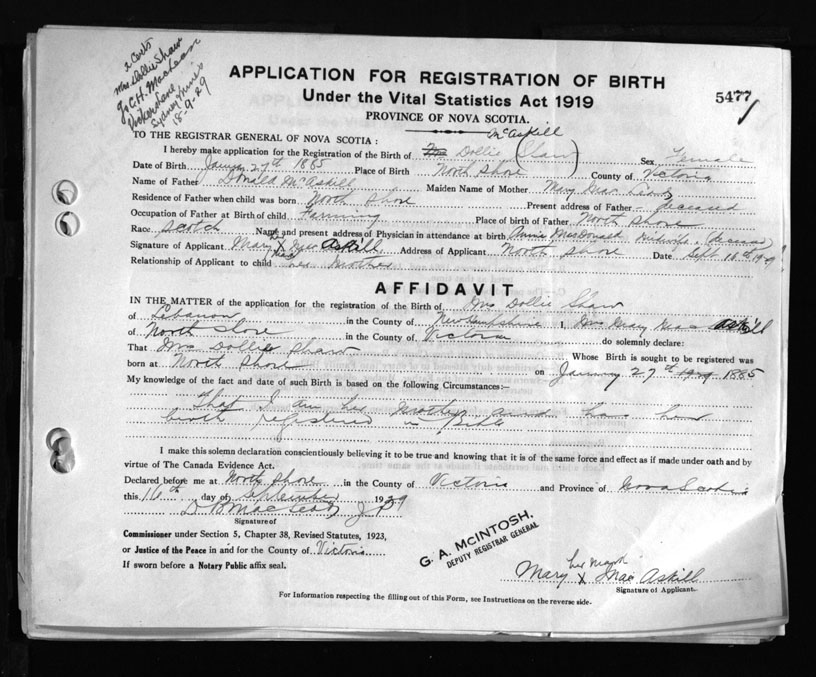 2 Certs
Mrs Dollie Shaw
℅ C.H. MacLean
Sydney Mines
18-9-29
APPLICATION FOR REGISTRATION OF BIRTH
Under the Vital Statistics Act 1919
5477
PROVINCE OF NOVA SCOTIA.
TO THE REGISTRAR GENERAL OF NOVA SCOTIA:
McAskill
I hereby make application for the Registration of the Birth of Dollie (Shaw) Sex Female
Date of Birth January 27th 1885 Place of Birth North Shore County of Victoria
Name of Father Donald McAskill Maiden Name of Mother Mary MacLeod
Residence of Father when child was born North Shore Present address of Father deceased
Occupation of Father at Birth of child Farming Place of birth of Father North Shore
Race Scotch Name and present address of Physician in attendance at birth Annie MacDonald Midwife, (deceased)
Signature of Applicant Mary her X mark MacAskill Address of Applicant North Shore Date Sept 16th 1929
Relationship of Applicant to child her Mother
AFFIDAVIT
IN THE MATTER of the application for the registration of the Birth of Mrs Dollie Shaw
of Lebanon in the County of New Hampshire I, Mrs Mary MacAskill
of North Shore in the County of Victoria do solemnly declare:
That Mrs Dollie Shaw Whose Birth is sought to be registered was
born at North Shore on January 27th 1885
My knowledge of the fact and date of such Birth is based on the following Circumstances:—
That I am her Mother and have her
birth registered in Bible
I make this solemn declaration conscientiously believing it to be true and knowing that it is of the same force and effect as if made under oath and by
virtue of The Canada Evidence Act.
Declared before me at North Shore in the County of Victoria and Province of Nova Scotia
this 16th day of September 1929
D B MacLeod J P
Signature of
Commissioner under Section 5, Chapter 38, Revised Statutes, 1923,
or Justice of the Peace in and for the County of Victoria
If sworn before a Notary Public affix seal.
G. A. McINTOSH,
DEPUTY REGISTRAR GENERAL
her mark
Mary X MacAskill
Signature of Applicant.
For Information respecting the filling out of this Form, see Instructions on the reverse side.